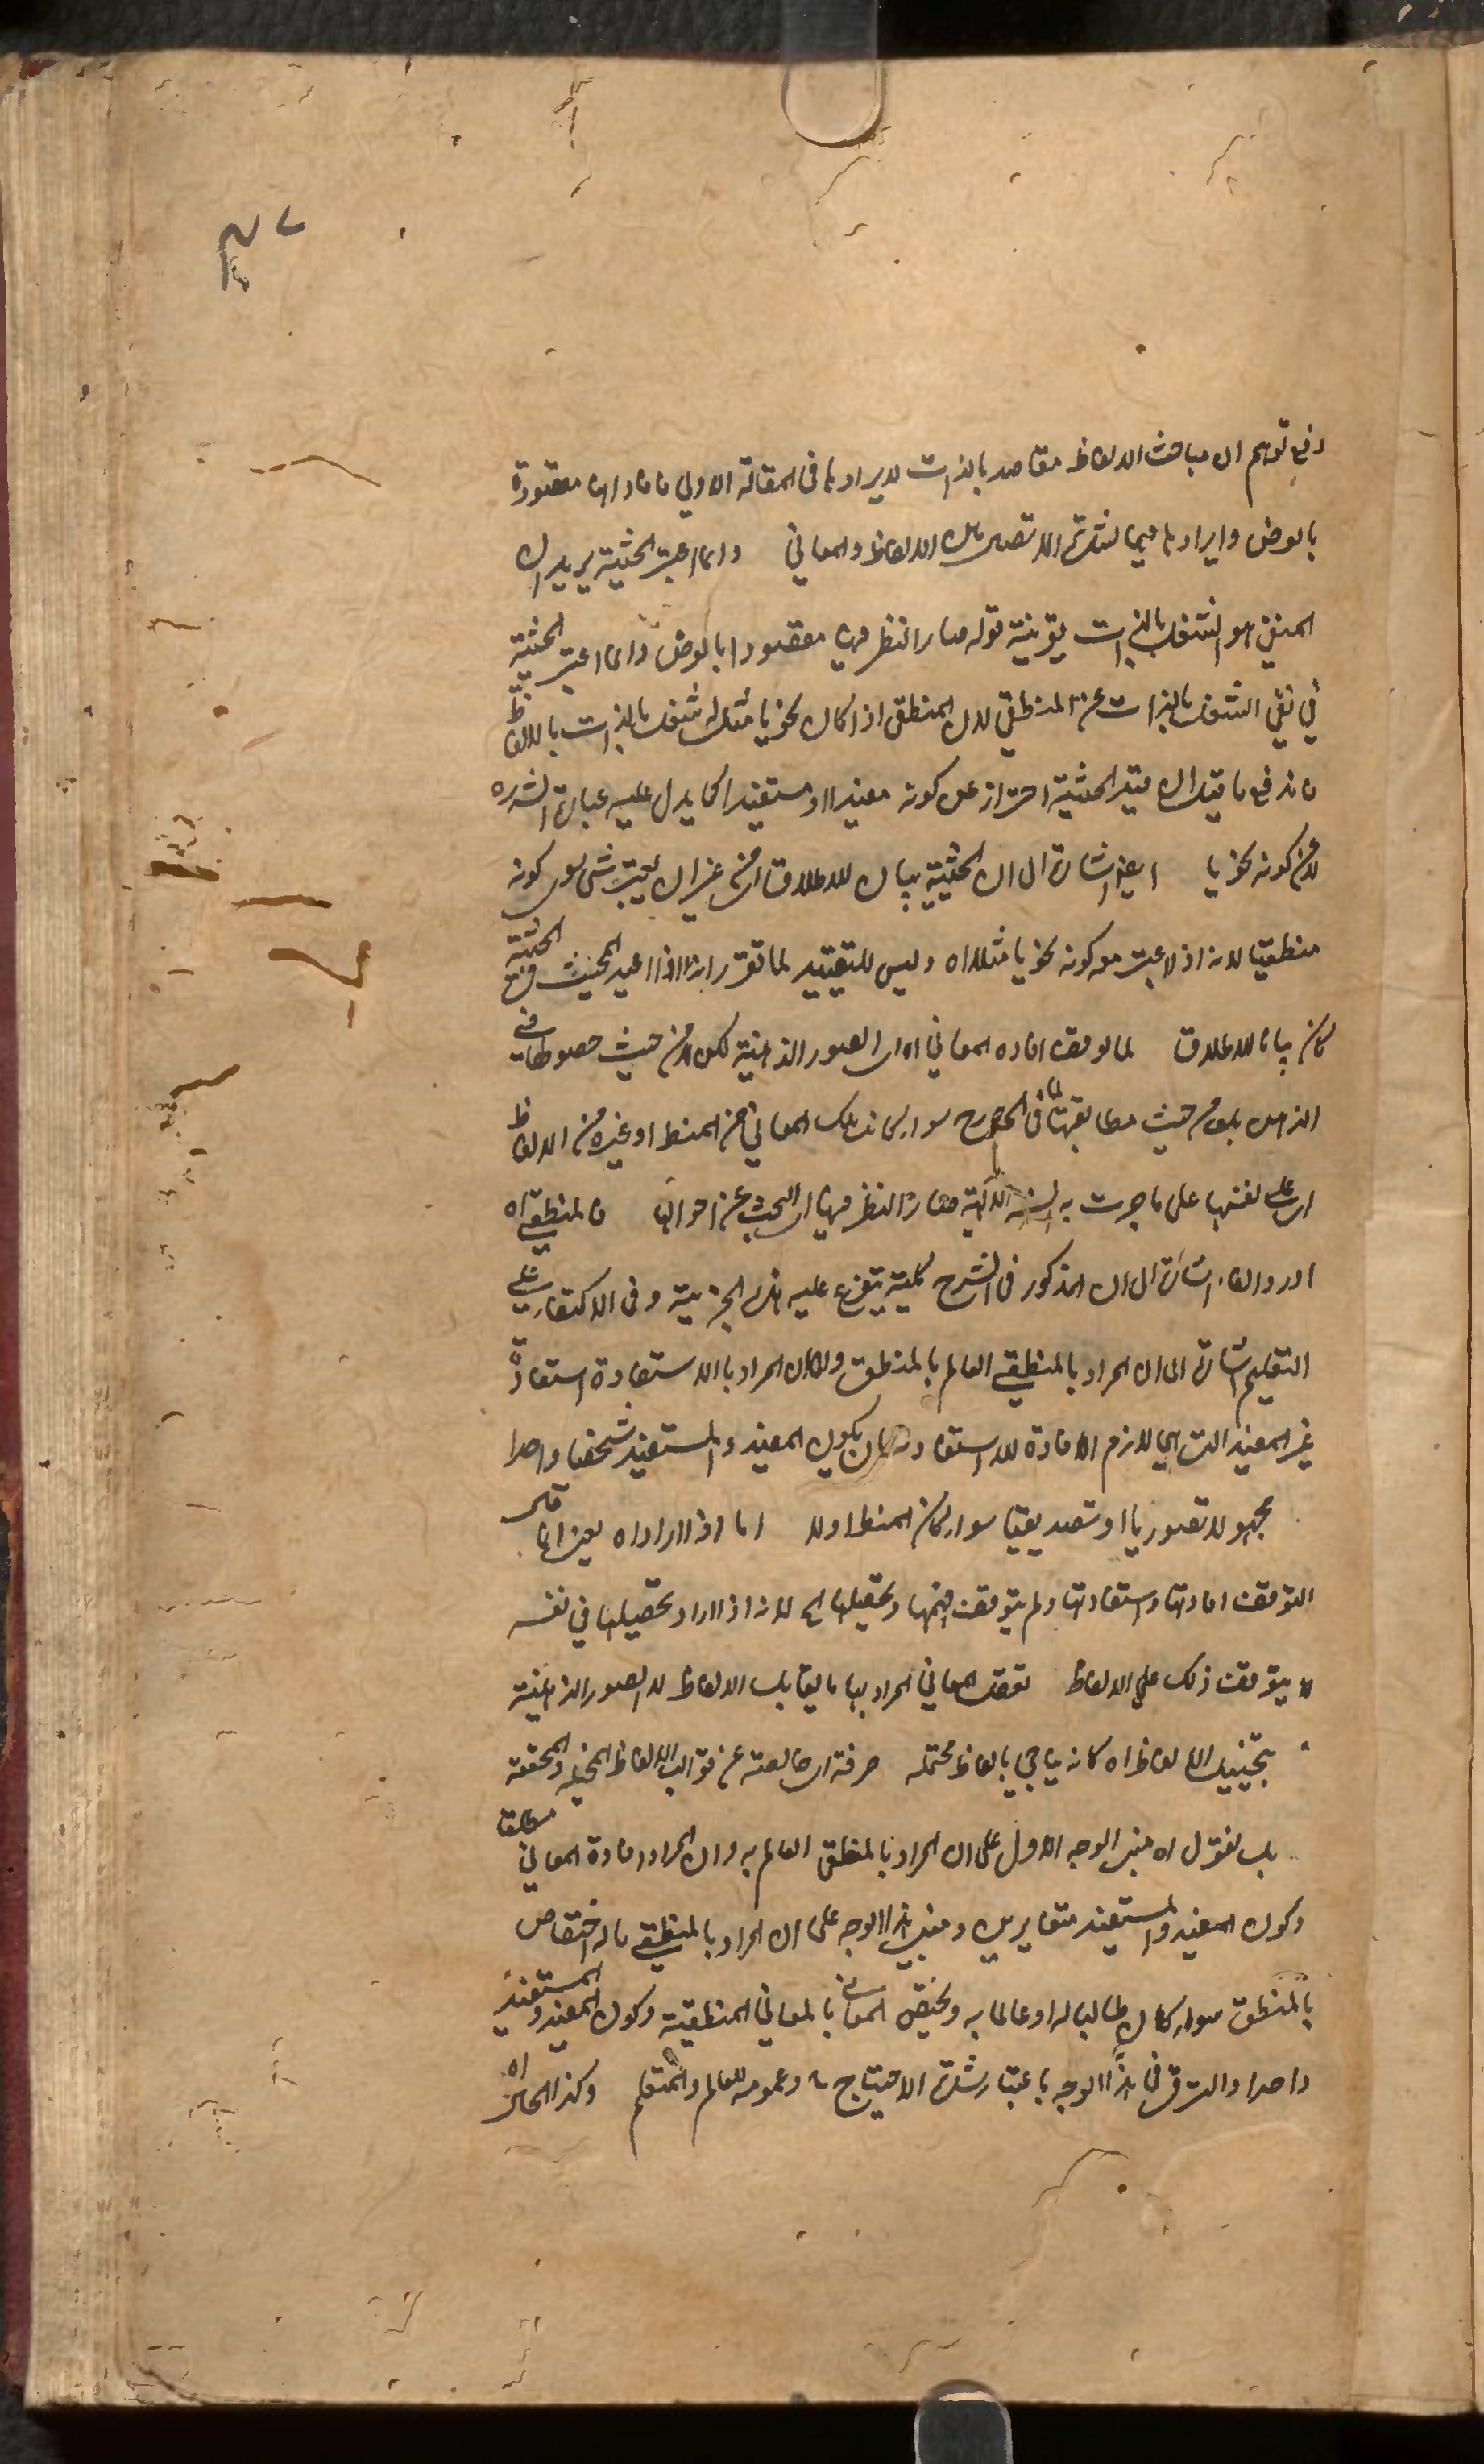 دفع توهم ان مباحث الالفاظ مقاصد بالذات لايرادها في المقالة الاولى فافاد انها مقصودة
بالعرض وايرادها فيها لشدة الاتصال بين الالفاظ والمعاني وانما اعتبر الحيثية يريد ان
المنفي هو الشغل بالذات بقرينة قوله صار النظر فيها مقصودا بالعرض وانما اعتبر الحيثية
في نفي الشغل بالذات عن المنطقي لان المنطقي اذا كان نحويا مثلا له شغل بالذات بالالفاظ
فاندفع ما قيل ان قيد الحيثية احتراز عن كونه مفيدا او مستفيدا كما يدل عليه عبارة الشرح
لا عن كونه نحويا ايضا اشارة الى ان الحيثية بيان للاطلاق اي من غير ان يعتبر شئ سوى كونه
منطقيا لانه اذ لا عبث مع كونه نحويا مثلا اه وليس للتقييد لما تقرر انه اذا اعيد المحيث في الحيثية
كان بيانا للاطلاق لما توقف افادة المعاني اه اي الصور الذهنية لكن لا من حيث حصولها في
الذهن بل من حيث مطابقتها لما في الخارج سواء كانت تلك المعاني من المنطق او غيره من الالفاظ
اي على لغتها على ما جرت به السنة الالهية صار النظر فيها اي البحث عن احوالها فالمنطقي اه
اورد الفاء اشارة الى ان المذكور في الشرح كلية يتفرع عليه هذه الجزئية وفي الاكتفاء على
التعليم اشارة الى ان المراد بالمنطقي العالم بالمنطق ولما كان المراد بالاستفادة استفادة
غير المفيد التي هي لازم الافادة للاستفادة بان يكون المفيد والمستفيد شخصا واحدا
مجهولا تصوريا او تصديقيا سواء كان المنطق اولا اما اذا اراد اه يعني انما قال
التوقف افادتها واستفادتها ولم يتوقف فهمها وتحصيلها الخ لانه اذا اراد تحصيلها في نفسه
لا يتوقف ذلك على الالفاظ تعقل المعاني المراد بها ما يقابل الالفاظ لا الصور الذهنية
بتخييل الالفاظ اه كانه يناجي بالفاظ مخيلة صرفة اي خالصة عن قوالب الالفاظ المخيلة والمحققة
بل نقول اه مبنى الوجه الاول على ان المراد بالمنطقي العالم به وان المراد افادة المعاني مطلقا
وكون المفيد والمستفيد متغايرين ومبنى هذا الوجه على ان المراد بالمنطقي ما له اختصاص
بالمنطق سواء كان طالبا له او عالما به وتخصيص المعاني بالمعاني المنطقية وكون المفيد والمستفيد
واحدا والترقي في هذا الوجه باعتبار شدة الاحتياج وعمومه للعالم والمتعلم وكذا الحال اه